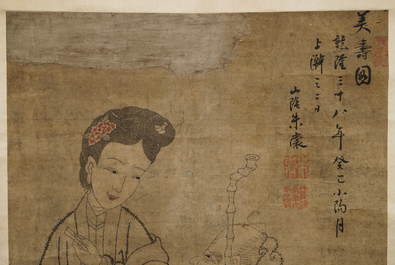 美壽圖
乾隆三十八年癸巳小陽月
上澣之二日
山陰朱裳